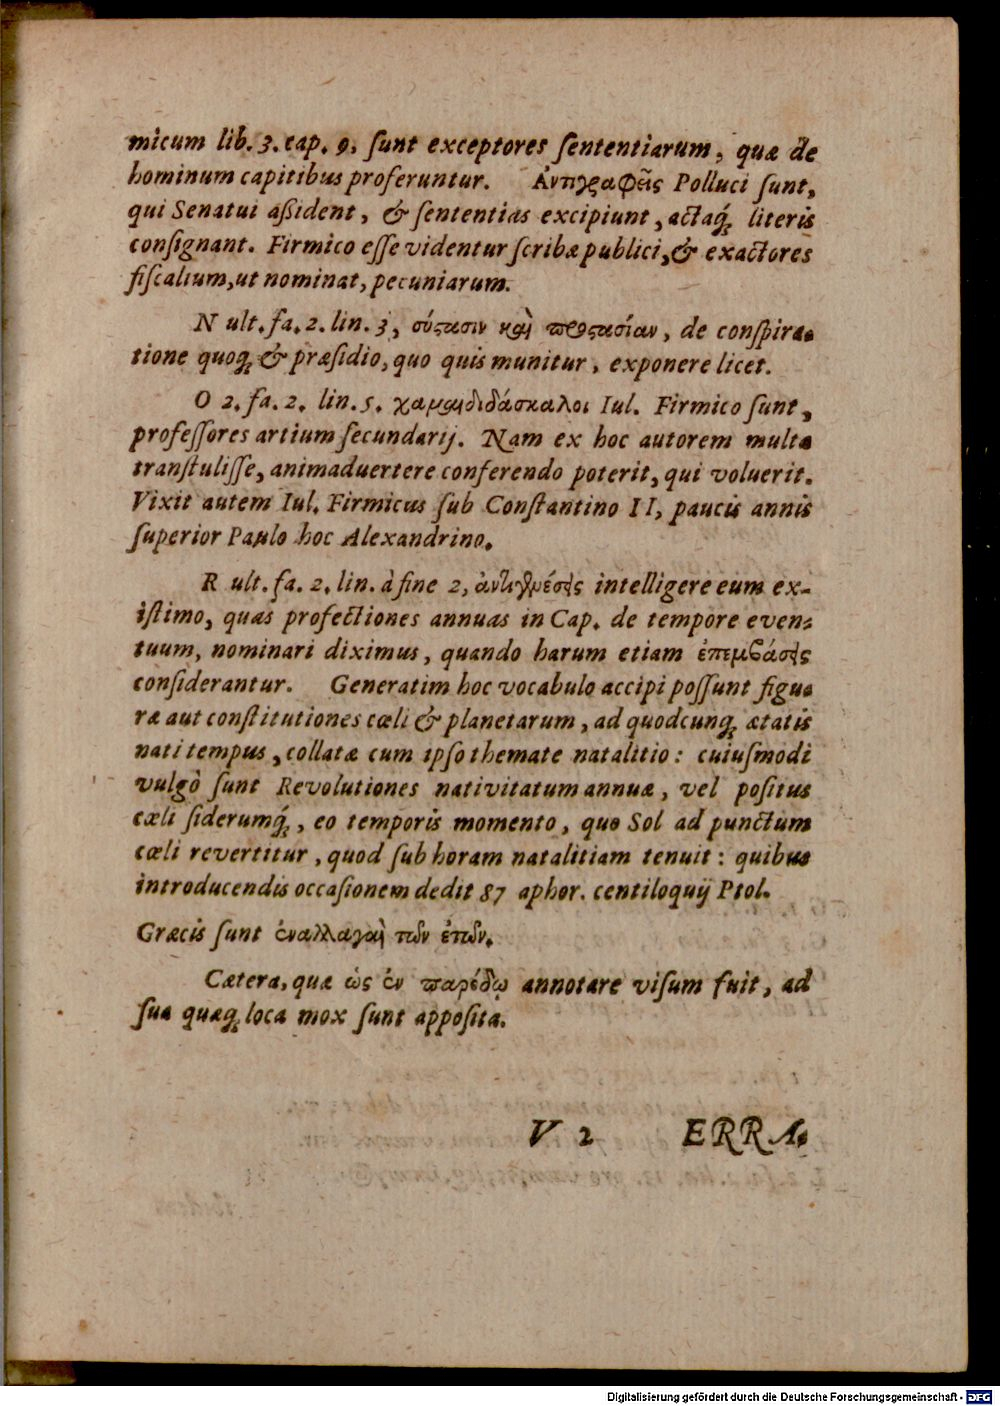 micum lib. 3. cap. 9, ſunt exceptores ſententiarum, quæ de
hominum capitibus proferuntur. Ἀντιγραφεῖς Polluci ſunt,
qui Senatui aßident, & ſententias excipiunt, actaq́; literis
conſignant. Firmico eſſe videntur ſcribæ publici, & exactores
fiſcalium, ut nominat, pecuniarum.
N ult. fa. 2. lin. 3, σύστασιν καὶ προστασίαν, de conſpira-
tione quoq; & præſidio, quo quis munitur, exponere licet.
O 2. fa. 2. lin. 5. χαμαιδιδάσκαλοι Iul. Firmico ſunt,
profeſſores artium ſecundarij. Nam ex hoc autorem multa
tranſtuliſſe, animaduertere conferendo poterit, qui voluerit.
Vixit autem Iul. Firmicus ſub Conſtantino II, paucis annis
ſuperior Paulo hoc Alexandrino.
R ult. fa. 2. lin. à fine 2, intelligere eum ex-
iſtimo, quas profectiones annuas in Cap. de tempore even-
tuum, nominari diximus, quando harum etiam ἐπεμβάσεις
conſiderantur. Generatim hoc vocabulo accipi poſſunt figu-
ræ aut conſtitutiones cœli & planetarum, ad quodcunq; ætatis
nati tempus, collatæ cum ipſo themate natalitio: cuiuſmodi
vulgò ſunt Revolutiones nativitatum annuæ, vel poſitus
cœli ſiderumq́;, eo temporis momento, quo Sol ad punctum
cœli revertitur, quod ſub horam natalitiam tenuit: quibus
introducendis occaſionem dedit 87 aphor. centiloquij Ptol.
Græcis ſunt ἐναλλαγαὶ τῶν ἐτῶν.
Cætera, quæ ὡς ἐν παρόδῳ annotare viſum fuit, ad
ſua quæq; loca mox ſunt appoſita.
V 2 ERRA-
Digitalisierung gefördert durch die Deutsche Forschungsgemeinschaft - DFG